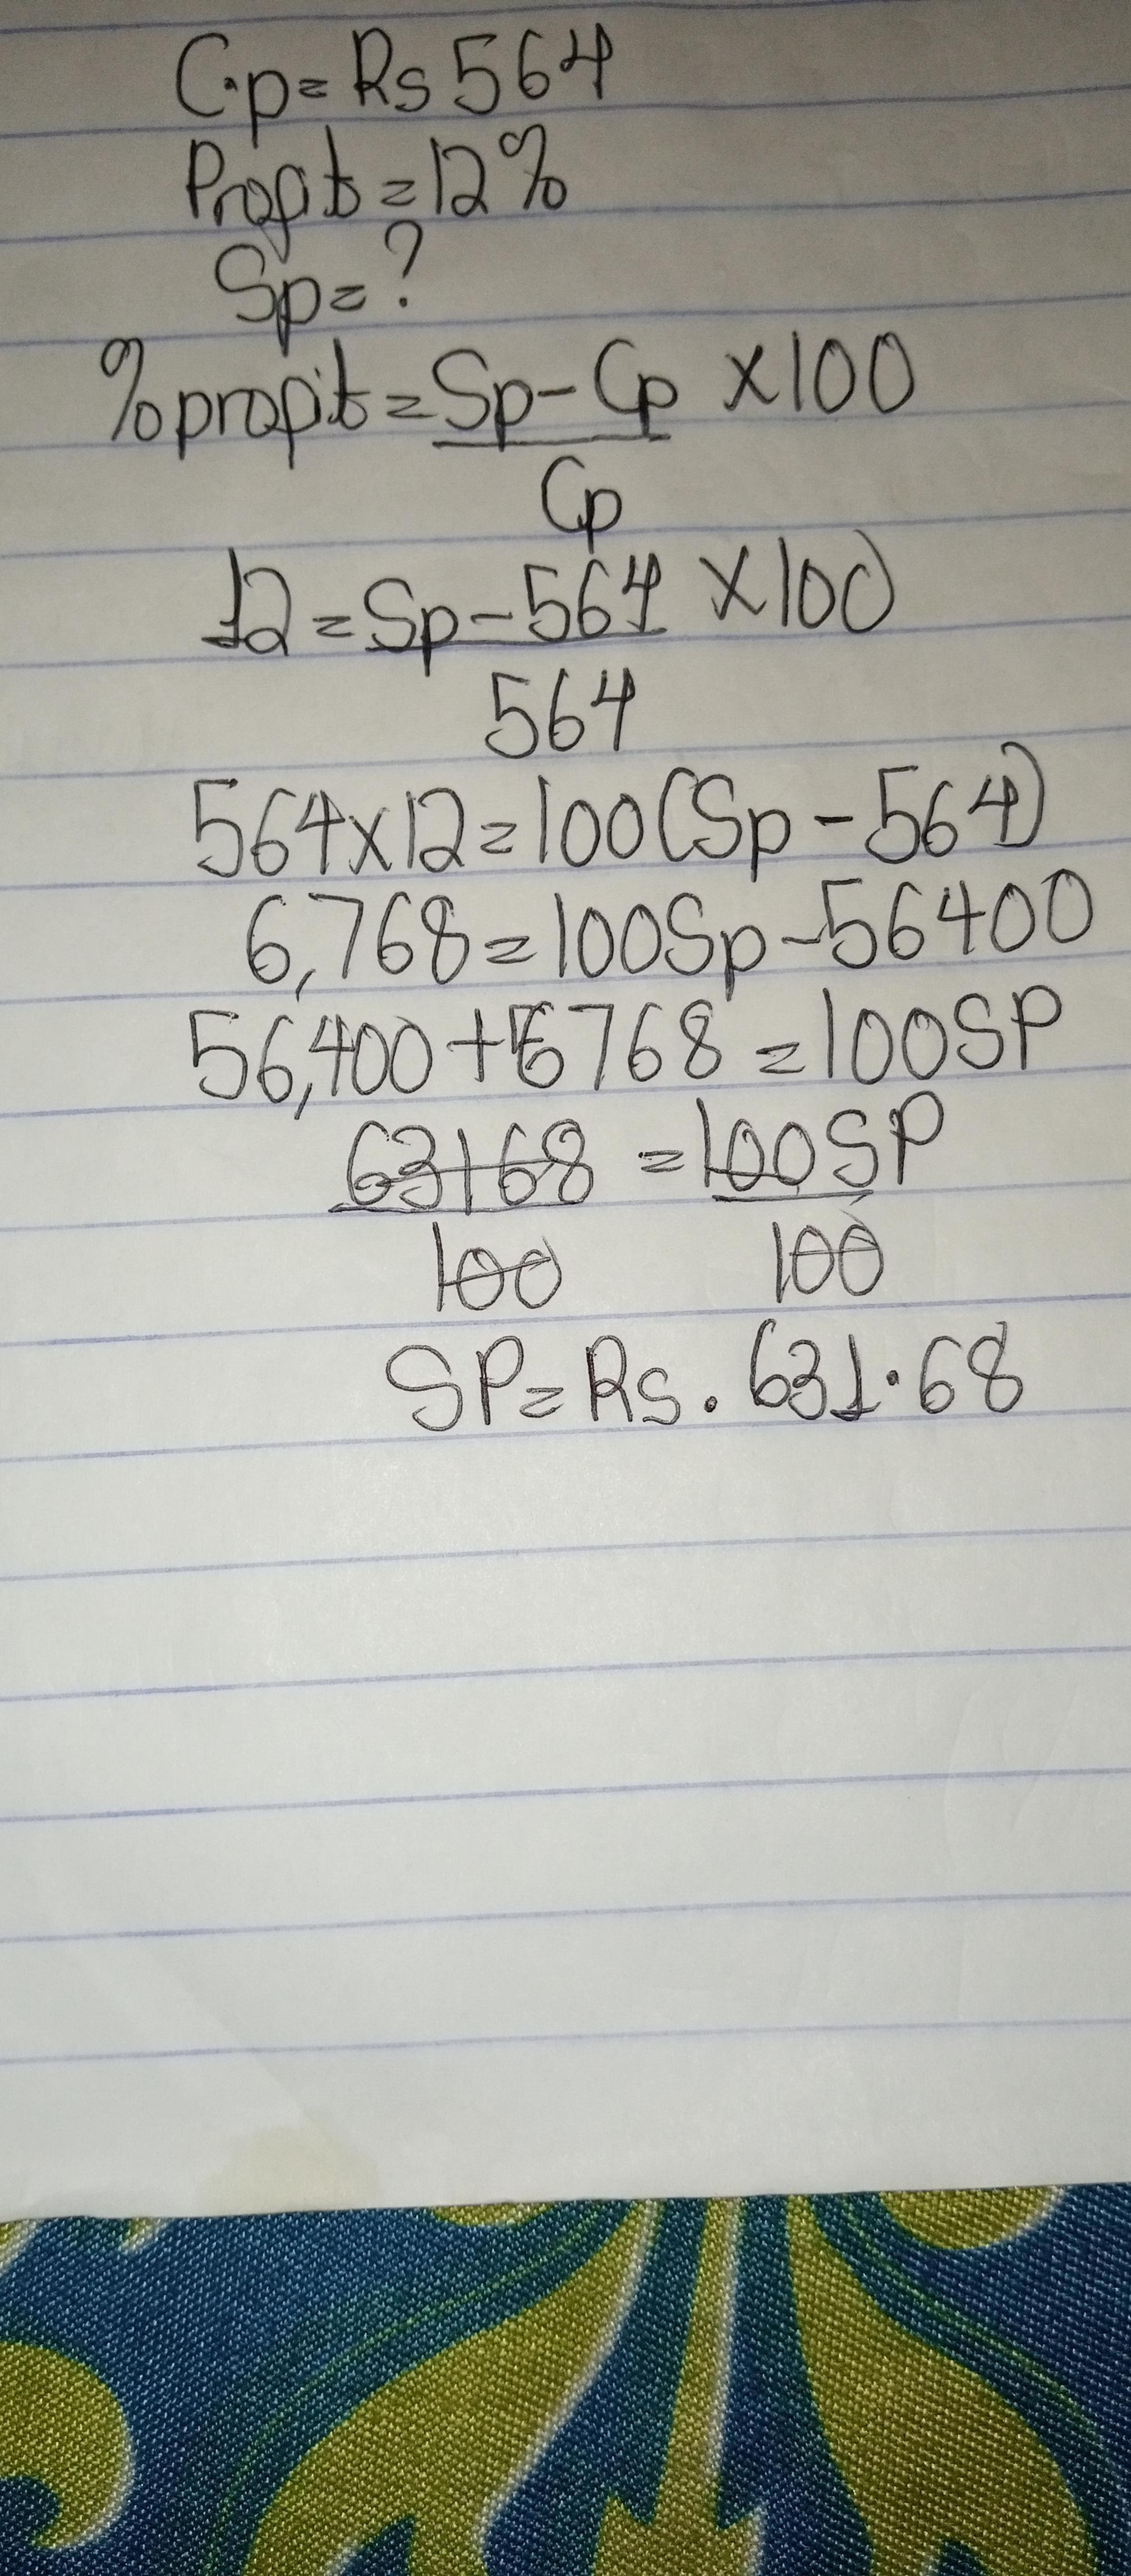 C.p = Rs 564
Profit = 12%
Sp = ?
%profit = Sp - Cp × 100
Cp
12 = Sp - 564 × 100
564
564 × 12 = 100(Sp - 564)
6,768 = 100Sp - 56400
56,400 + 6768 = 100SP
63168 = 100SP
100 100
SP = Rs. 631.68